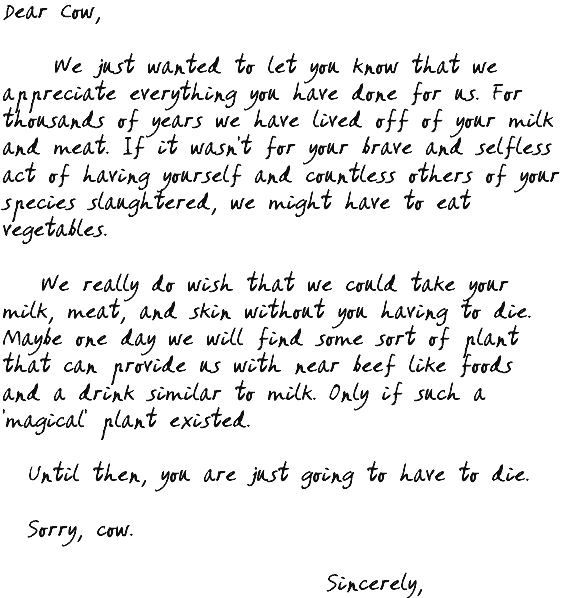 Dear Cow,
We just wanted to let you know that we
appreciate everything you have done for us. For
thousands of years we have lived off of your milk
and meat. If it wasn't for your brave and selfless
act of having yourself and countless others of your
species slaughtered, we might have to eat
vegetables.
We really do wish that we could take your
milk, meat, and skin without you having to die.
Maybe one day we will find some sort of plant
that can provide us with near beef like foods
and a drink similar to milk. Only if such a
'magical' plant existed.
Until then, you are just going to have to die.
Sorry, cow.
Sincerely,